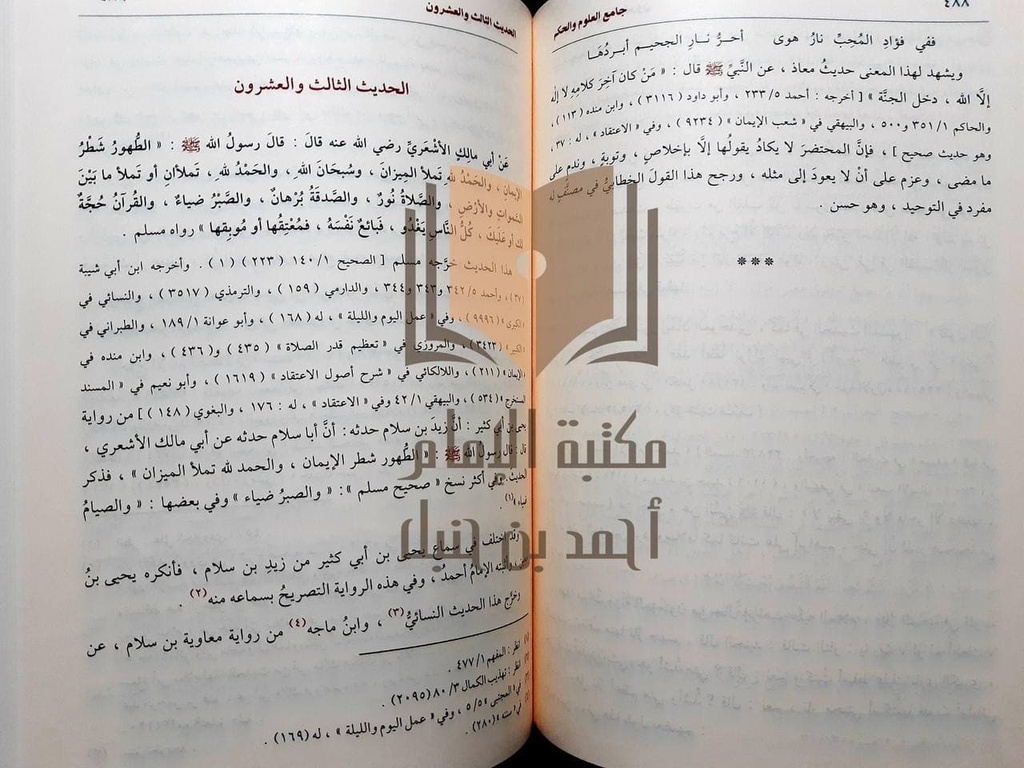 ٤٨٨
جامع العلوم والحكم
ففي فؤادِ المُحِبِّ نارُ هوى أحرُّ نارِ الجحيمِ أبردُهَا
ويشهد لهذا المعنى حديثُ معاذ ، عن النَّبيِّ ﷺ قال : « مَنْ كان آخِرَ كلامِهِ لا إلٰه
إلَّا الله ، دخل الجنَّة » [ أخرجه : أحمد ٥/ ٢٣٣ ، وأبو داود ( ٣١١٦ ) ، وابن منده ( ١١٣ ) ،
والحاكم ١/ ٣٥١ و٥٠٠ ، والبيهقي في « شعب الإيمان » ( ٩٢٣٤ ) ، وفي « الاعتقاد » ، له : ٣٧ ،
وهو حديث صحيح ] ، فإنَّ المحتضرَ لا يكادُ يقولُها إلَّا بإخلاصٍ ، وتوبةٍ ، وندمٍ على
ما مضى ، وعزم على أنْ لا يعودَ إلى مثله ، ورجح هذا القولَ الخطابيُّ في مصنَّفٍ له
مفرد في التوحيد ، وهو حسن .
***
الحديث الثالث والعشرون
الحديث الثالث والعشرون
عَنْ أبي مالِكٍ الأشعَريِّ رضي الله عنه قالَ : قالَ رسولُ الله ﷺ : « الطُّهورُ شَطْرُ
الإيمانِ ، والحَمْدُ للهِ تَملأُ المِيزانَ ، وسُبحَانَ اللهِ ، والحَمْدُ للهِ ، تَملآانِ أو تَملأُ ما بَيْنَ
السَّمواتِ والأرْضِ ، والصَّلاةُ نُورٌ ، والصَّدقَةُ بُرْهانٌ ، والصَّبْرُ ضياءٌ ، والقُرآنُ حُجَّةٌ
لك أو عَلَيكَ ، كُلُّ النَّاسِ يَغْدُو ، فَبائعٌ نَفْسَهُ ، فَمُعْتِقُها أو مُوبِقها » رواه مسلم .
هذا الحديث خرَّجه مسلم [ الصحيح ١/ ١٤٠ ( ٢٢٣ ) ( ١ ) . وأخرجه ابن أبي شيبة
(٣٧) ، وأحمد ٥/ ٣٤٢ و٣٤٣ و٣٤٤ ، والدارمي ( ١٥٩ ) ، والترمذي ( ٣٥١٧ ) ، والنسائي في
« الكبرى » ( ٩٩٩٦ ) ، وفي « عمل اليوم والليلة » ، له ( ١٦٨ ) ، وأبو عوانة ١/ ١٨٩ ، والطبراني في
« الكبير » ( ٣٤٢٣ ) ، والمروزي في « تعظيم قدر الصلاة » ( ٤٣٥ ) و( ٤٣٦ ) ، وابن منده في
« الإيمان » ( ٢١١ ) ، واللالكائي في « شرح أصول الاعتقاد » ( ١٦١٩ ) ، وأبو نعيم في « المسند
المستخرج » ( ٥٣٤ ) ، والبيهقي ١/ ٤٢ وفي « الاعتقاد » ، له : ١٧٦ ، والبغوي ( ١٤٨ ) ] من رواية
يحيى بن أبي كثير : أنَّ زيدَ بن سلام حدثه : أنَّ أبا سلام حدثه عن أبي مالك الأشعري ،
قال : قال رسولُ الله ﷺ : « الطُّهور شطر الإيمان ، والحمد لله تملأ الميزان » ، فذكر
الحديث . وفي أكثر نسخ « صحيح مسلم » : « والصبرُ ضياء » وفي بعضها : « والصيامُ
ضياء »(١) .
وقد اختلف في سماع يحيى بن أبي كثير من زيدِ بن سلام ، فأنكره يحيى بنُ
وأثبته الإمامُ أحمد ، وفي هذه الرواية التصريحُ بسماعه منه(٢) .
وخرَّج هذا الحديث النسائيُّ(٣) ، وابنُ ماجه(٤) من رواية معاوية بن سلام ، عن
(١) انظر : المفهم ١/ ٤٧٧ .
(٢) انظر : تهذيب الكمال ٣/ ٨٠ ( ٢٠٩٥ ) .
(٣) في « المجتبى » ٥/ ٥ ، وفي « عمل اليوم والليلة » ، له (١٦٩) .
(٤) في « سننه » (٢٨٠) .
مكتبة الإمام
أحمد بن حنبل